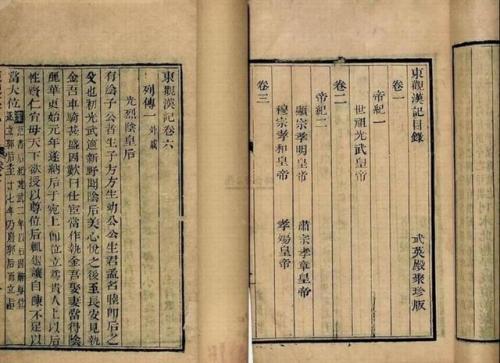 東觀漢記目錄 武英殿聚珍版
卷一
帝紀一
世祖光武皇帝
卷二
帝紀二
顯宗孝明皇帝 肅宗孝章皇帝
穆宗孝和皇帝 孝殤皇帝
卷三
東觀漢記卷六
列傳一 外戚
光烈陰皇后
有陰子公者生子方方生幼公公生君孟名睦即后之
父也初光武適新野聞陰后美心悅之後至長安見執
金吾車騎甚盛因歎曰仕宦當作執金吾娶妻當得陰
麗華更始元年遂納后于宛上即位立為貴人上以后
性賢仁宜母天下欲授以尊位后輒退讓自陳不足以
當大位